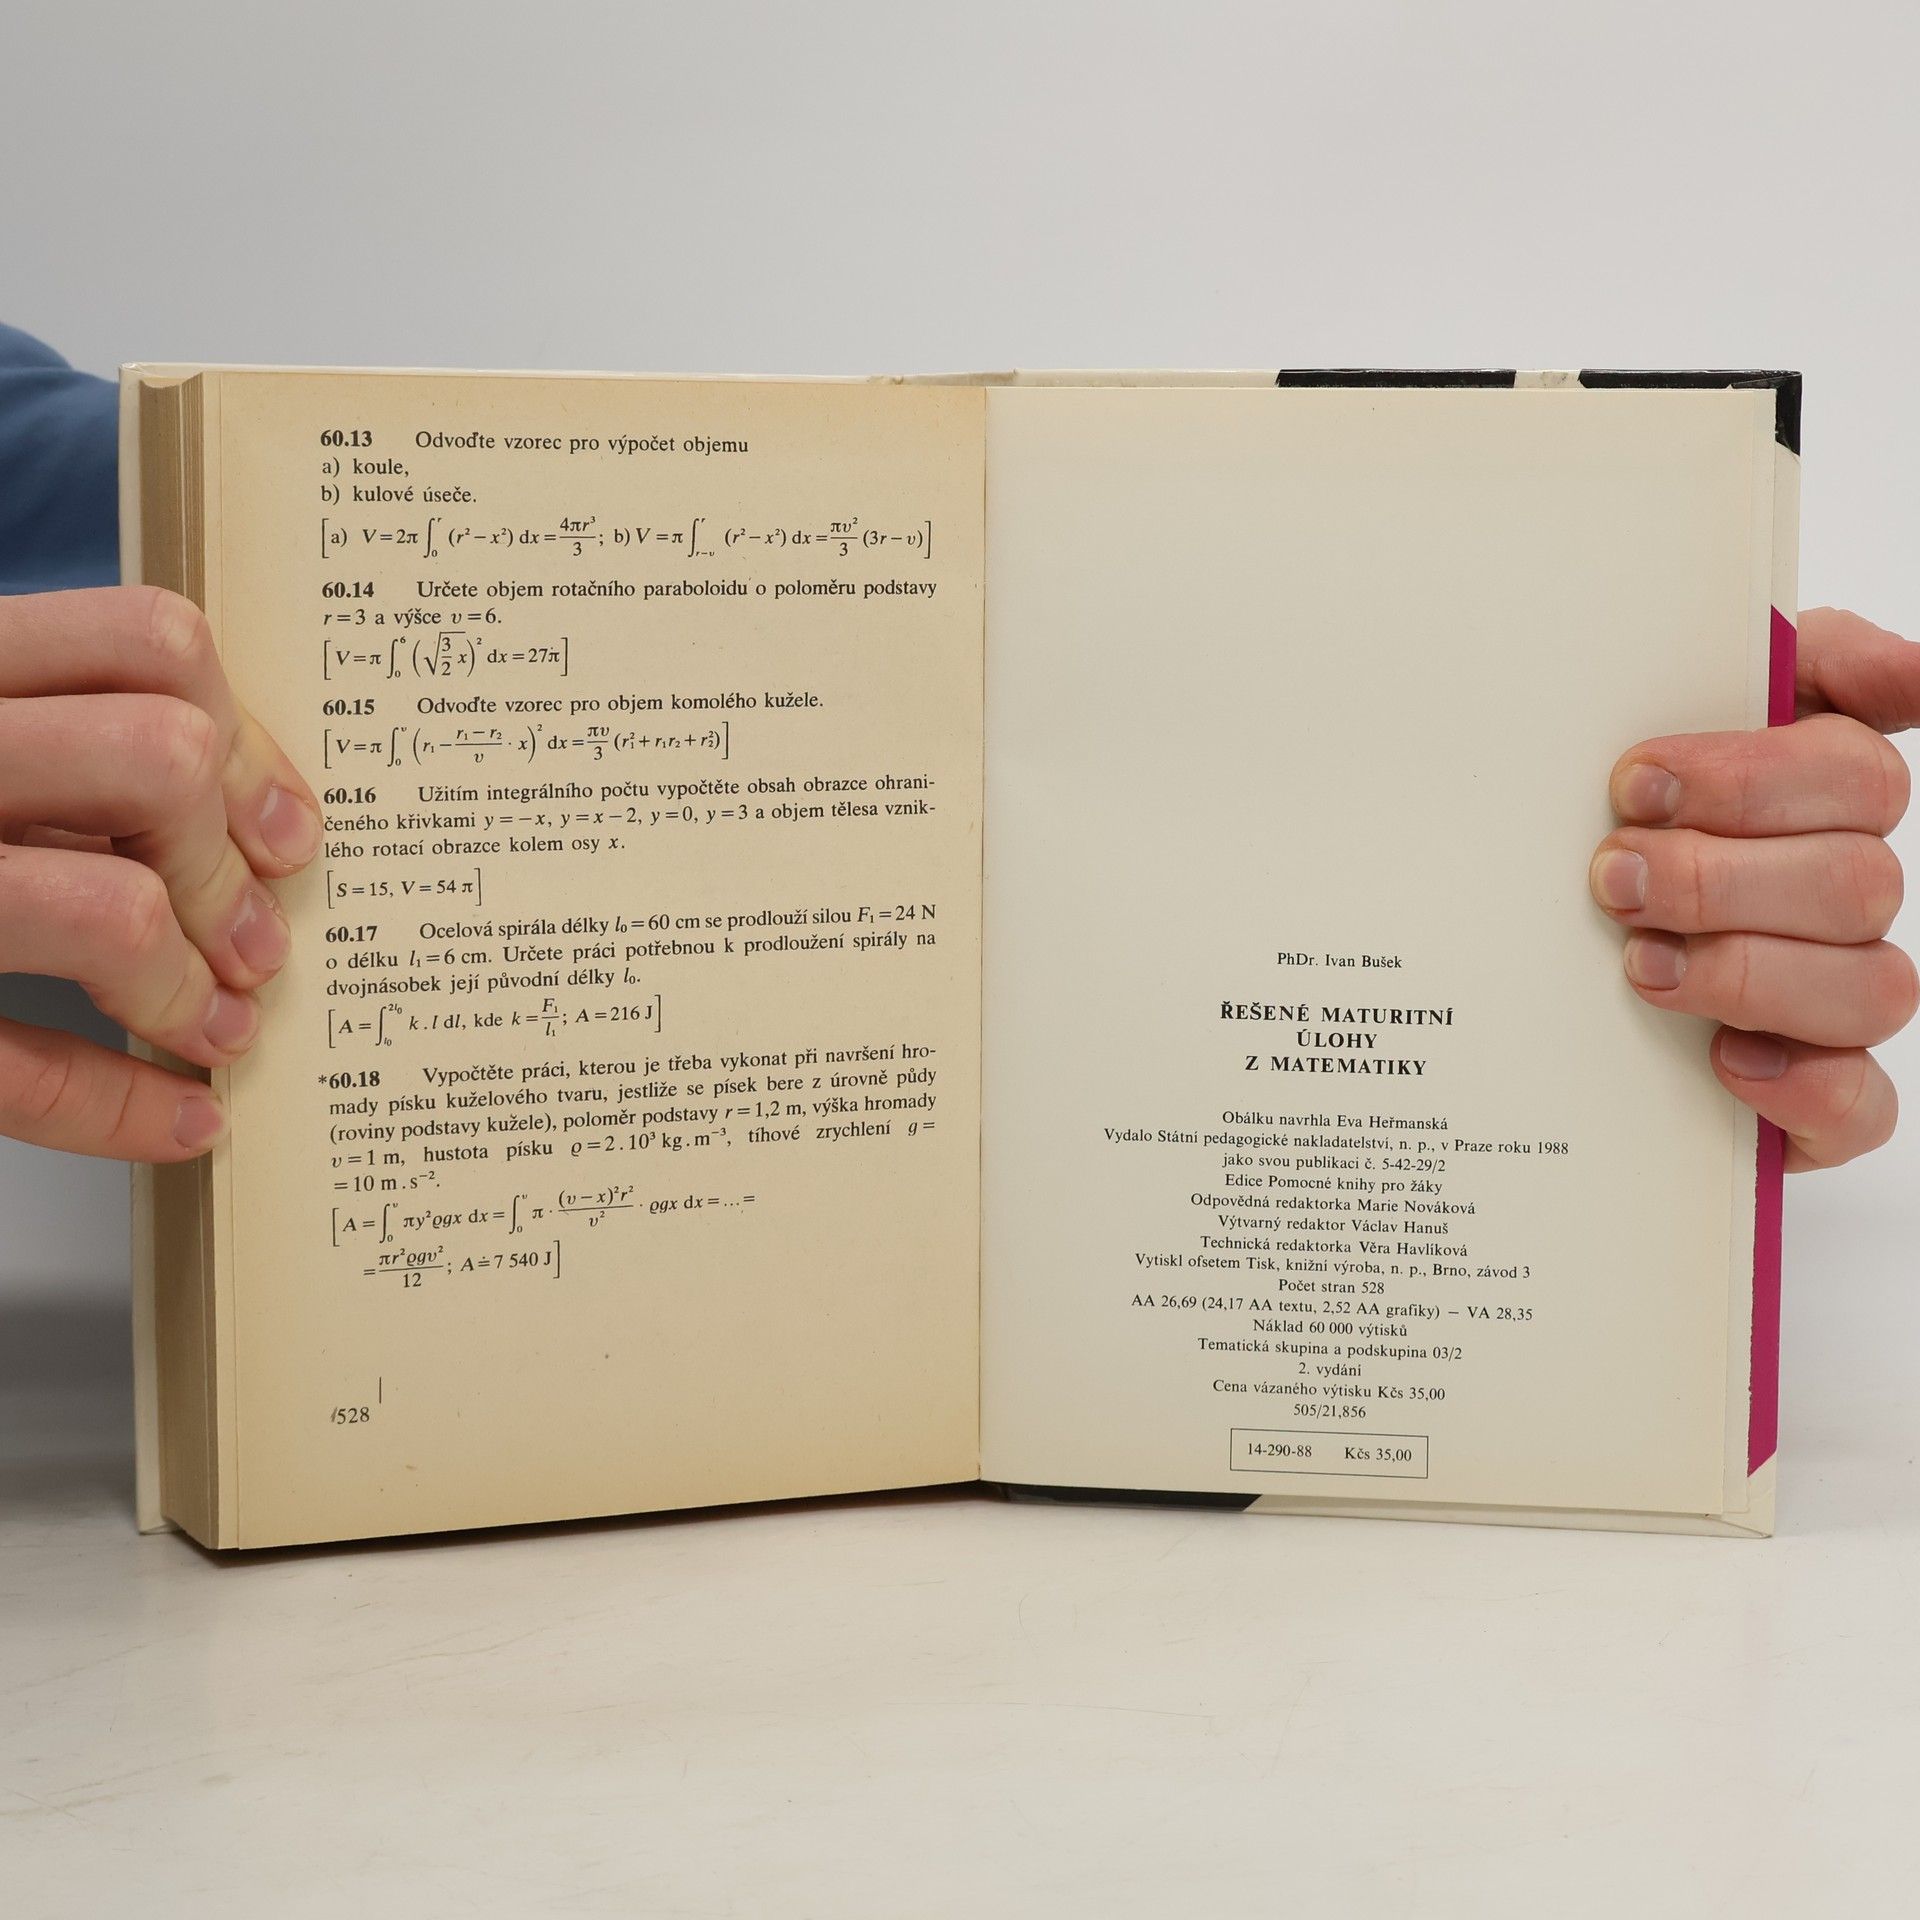 60.13 Odvoďte vzorec pro výpočet objemu
a) koule,
b) kulové úseče.
[a) V=2π∫₀ʳ (r²−x²) dx=4πr³/3; b) V=π∫ᵣ₋ᵥʳ (r²−x²) dx=πv²/3 (3r−v)]
60.14 Určete objem rotačního paraboloidu o poloměru podstavy
r=3 a výšce v=6.
[V=π∫₀⁶ (√(3/2 x))² dx=27π]
60.15 Odvoďte vzorec pro objem komolého kužele.
[V=π∫₀ᵛ (r₁−(r₁−r₂)/v · x)² dx=πv/3 (r₁²+r₁r₂+r₂²)]
60.16 Užitím integrálního počtu vypočtěte obsah obrazce ohrani-
čeného křivkami y=−x, y=x−2, y=0, y=3 a objem tělesa vznik-
lého rotací obrazce kolem osy x.
[S=15, V=54 π]
60.17 Ocelová spirála délky l₀=60 cm se prodlouží silou F₁=24 N
o délku l₁=6 cm. Určete práci potřebnou k prodloužení spirály na
dvojnásobek její původní délky l₀.
[A=∫_{l₀}^{2l₀} k.l dl, kde k=F₁/l₁; A=216 J]
*60.18 Vypočtěte práci, kterou je třeba vykonat při navršení hro-
mady písku kuželového tvaru, jestliže se písek bere z úrovně půdy
(roviny podstavy kužele), poloměr podstavy r=1,2 m, výška hromady
v=1 m, hustota písku ϱ=2.10³ kg.m⁻³, tíhové zrychlení g=
=10 m.s⁻².
[A=∫₀ᵛ πy²ϱgx dx=∫₀ᵛ π·(v−x)²r²/v² · ϱgx dx=...=
=πr²ϱgv²/12; A≐7 540 J]
528
PhDr. Ivan Bušek
ŘEŠENÉ MATURITNÍ
ÚLOHY
Z MATEMATIKY
Obálku navrhla Eva Heřmanská
Vydalo Státní pedagogické nakladatelství, n. p., v Praze roku 1988
jako svou publikaci č. 5-42-29/2
Edice Pomocné knihy pro žáky
Odpovědná redaktorka Marie Nováková
Výtvarný redaktor Václav Hanuš
Technická redaktorka Věra Havlíková
Vytiskl ofsetem Tisk, knižní výroba, n. p., Brno, závod 3
Počet stran 528
AA 26,69 (24,17 AA textu, 2,52 AA grafiky) — VA 28,35
Náklad 60 000 výtisků
Tematická skupina a podskupina 03/2
2. vydání
Cena vázaného výtisku Kčs 35,00
505/21,856
14-290-88 Kčs 35,00